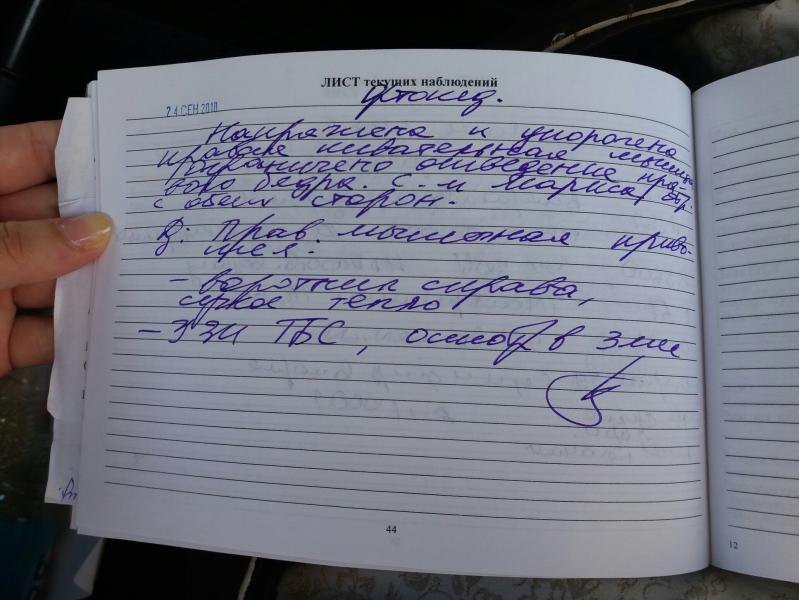 ЛИСТ текущих наблюдений
24 СЕН 2018
Ортопед.
Напряжена и укорочена
правая кивательная мышца
Ограничено отведение пра-
вого бедра. С-м Маркса отр.
с обеих сторон.
Д: Прав. мышечная криво-
шея.
- воротник справа,
сухое тепло
- УЗИ ТБС, осмотр в 3 мес
44
12